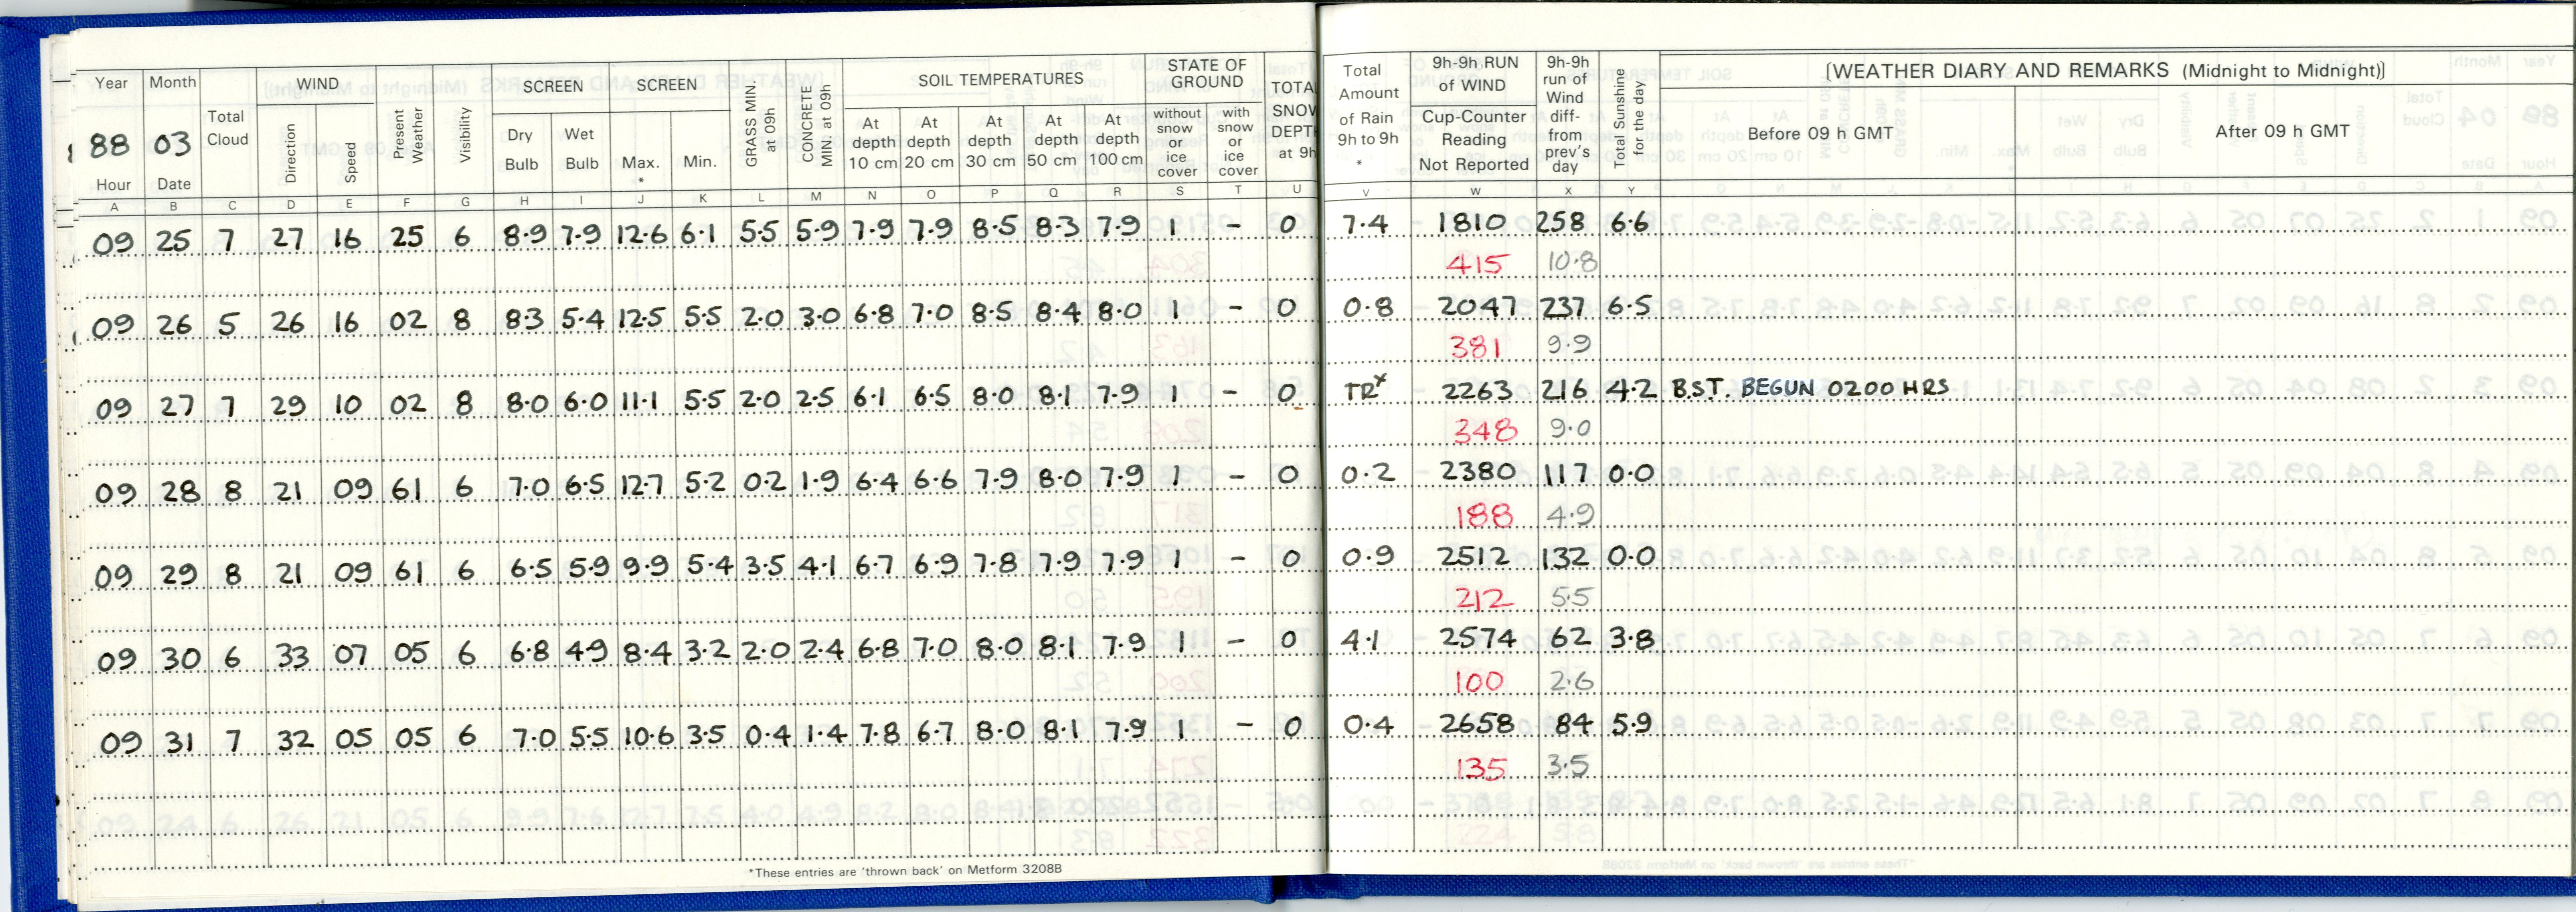 Year Month Total Cloud WIND Present Weather Visibility SCREEN SCREEN GRASS MIN. at 09h CONCRETE MIN. at 09h SOIL TEMPERATURES STATE OF GROUND TOTAL SNOW DEPTH at 9h Total Amount of Rain 9h to 9h * 9h-9h RUN of WIND 9h-9h run of Wind diff- from prev's day Total Sunshine for the day [WEATHER DIARY AND REMARKS (Midnight to Midnight)]
88 03 Direction Speed Dry Bulb Wet Bulb Max. * Min. At depth 10 cm At depth 20 cm At depth 30 cm At depth 50 cm At depth 100 cm without snow or ice cover with snow or ice cover Cup-Counter Reading Not Reported Before 09 h GMT After 09 h GMT
Hour Date
A B C D E F G H I J K L M N O P Q R S T U V W X Y
09 25 7 27 16 25 6 8.9 7.9 12.6 6.1 5.5 5.9 7.9 7.9 8.5 8.3 7.9 1 - 0 7.4 1810 258 6.6
415 10.8
09 26 5 26 16 02 8 8.3 5.4 12.5 5.5 2.0 3.0 6.8 7.0 8.5 8.4 8.0 1 - 0 0.8 2047 237 6.5
381 9.9
09 27 7 29 10 02 8 8.0 6.0 11.1 5.5 2.0 2.5 6.1 6.5 8.0 8.1 7.9 1 - 0 TRx 2263 216 4.2 B.S.T. BEGUN 0200 HRS
348 9.0
09 28 8 21 09 61 6 7.0 6.5 12.7 5.2 0.2 1.9 6.4 6.6 7.9 8.0 7.9 1 - 0 0.2 2380 117 0.0
188 4.9
09 29 8 21 09 61 6 6.5 5.9 9.9 5.4 3.5 4.1 6.7 6.9 7.8 7.9 7.9 1 - 0 0.9 2512 132 0.0
212 5.5
09 30 6 33 07 05 6 6.8 4.9 8.4 3.2 2.0 2.4 6.8 7.0 8.0 8.1 7.9 1 - 0 4.1 2574 62 3.8
100 2.6
09 31 7 32 05 05 6 7.0 5.5 10.6 3.5 0.4 1.4 7.8 6.7 8.0 8.1 7.9 1 - 0 0.4 2658 84 5.9
135 3.5
*These entries are 'thrown back' on Metform 3208B